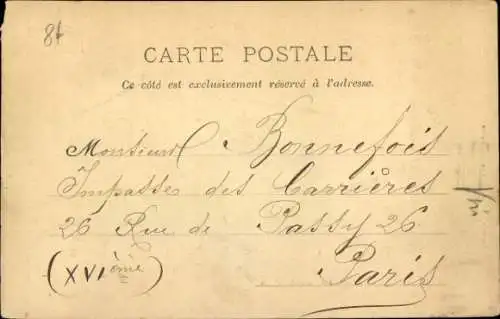 8f
CARTE POSTALE
Ce côté est exclusivement réservé à l'adresse.
Monsieur Bonnefois
Impasse des Carrières
26 Rue de Passy 26
(XVIème) Paris